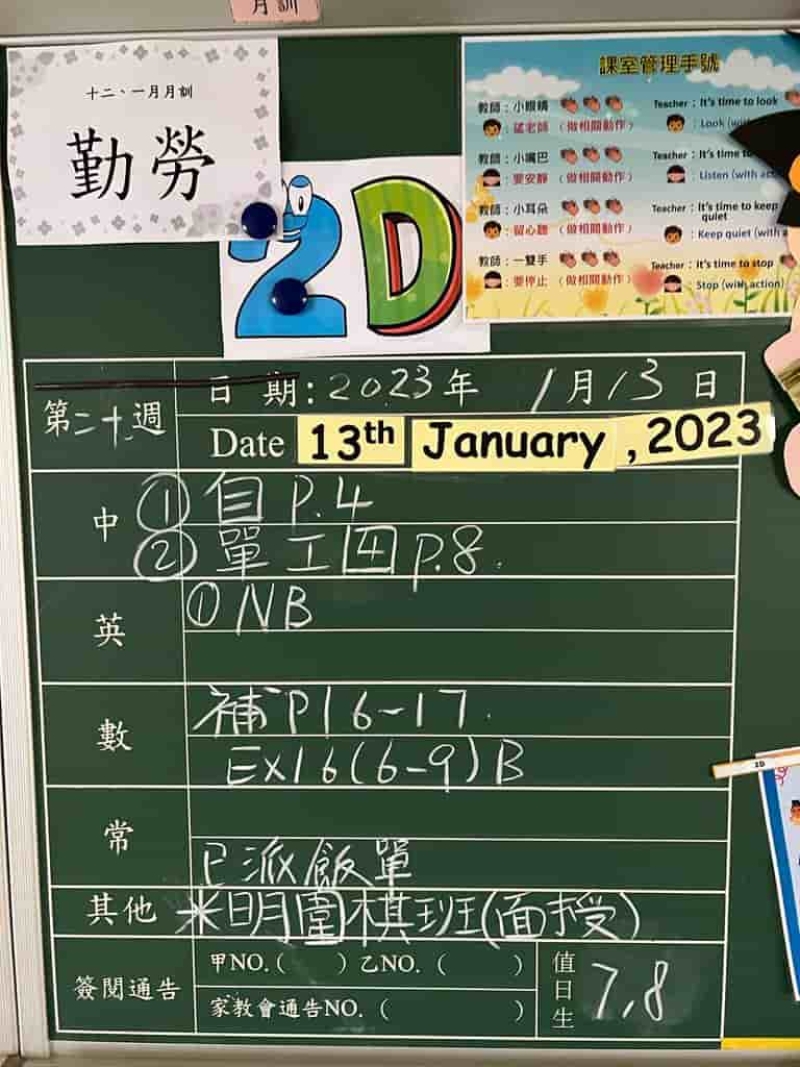 月訓
十二、一月月訓
勤勞
2D
課室管理手號
教師：小眼睛
：望老師（做相關動作）
教師：小嘴巴
：要安靜（做相關動作）
教師：小耳朵
：留心聽（做相關動作）
教師：一雙手
：要停止（做相關動作）
Teacher：It's time to look
：Look
Teacher：It's time to
：Listen (with
Teacher：It's time to keep
quiet
：Keep quiet (with
Teacher：It's time to stop
：Stop (with action)
第二十週
日 期：2023年 1月13日
Date 13th January, 2023
中 ① 自 P.4
② 單工四 P.8.
英 ① NB
數 補 P16-17.
EX16(6-9)B
常
已派飯單
其他 ※明圍棋班(面授)
簽閱通告 甲NO.( ) 乙NO.( )
家教會通告NO.( )
值日生 7,8